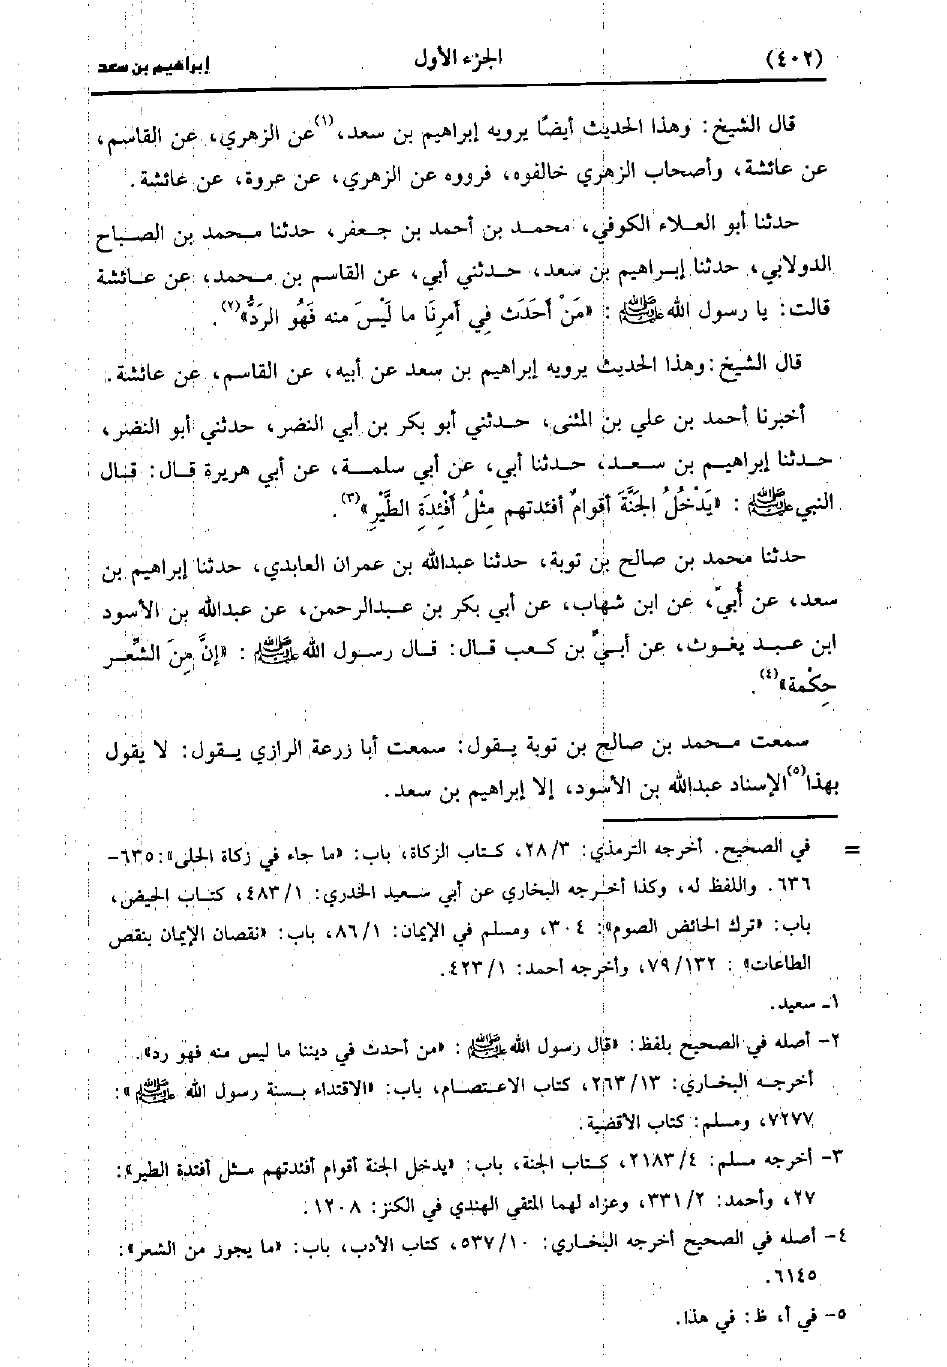 (٤٠٢) الجزء الأول إبراهيم بن سعد
قال الشيخ: وهذا الحديث أيضًا يرويه إبراهيم بن سعد،(١) عن الزهري، عن القاسم،
عن عائشة، وأصحاب الزهري خالفوه، فرووه عن الزهري، عن عروة، عن عائشة.
حدثنا أبو العلاء الكوفي، محمد بن أحمد بن جعفر، حدثنا محمد بن الصباح
الدولابي، حدثنا إبراهيم بن سعد، حدثني أبي، عن القاسم بن محمد، عن عائشة
قالت: يا رسول الله ﷺ : «مَنْ أَحَدَث فِي أَمرِنَا ما لَيْسَ منه فَهُو الرَدُّ»(٢).
قال الشيخ: وهذا الحديث يرويه إبراهيم بن سعد عن أبيه، عن القاسم، عن عائشة.
أخبرنا أحمد بن علي بن المثنى، حدثني أبو بكر بن أبي النضر، حدثني أبو النضر،
حدثنا إبراهيم بن سعد، حدثنا أبي، عن أبي سلمة، عن أبي هريرة قال: قال
النبي ﷺ : «يَدْخُلُ الجَنَّةَ أقوامٌ أفئدتهم مِثْلُ أَفْئِدَةِ الطَّيْرِ»(٣).
حدثنا محمد بن صالح بن توبة، حدثنا عبدالله بن عمران العابدي، حدثنا إبراهيم بن
سعد، عن أُبيّ، عن ابن شهاب، عن أبي بكر بن عبدالرحمن، عن عبدالله بن الأسود
ابن عبد يغوث، عن أبيٌّ بن كعب قال: قال رسول الله ﷺ : «إنَّ مِنَ الشِّعرِ
حِكْمة»(٤).
سمعت محمد بن صالح بن توبة يقول: سمعت أبا زرعة الرازي يقول: لا يقول
بهذا(٥) الإسناد عبدالله بن الأسود، إلا إبراهيم بن سعد.
= في الصحيح. أخرجه الترمذي: ٢٨/٣، كتاب الزكاة، باب: «ما جاء في زكاة الحلى»: ٦٣٥-
٦٣٦. واللفظ له، وكذا أخرجه البخاري عن أبي سعيد الخدري: ٤٨٣/١، كتاب الحيض،
باب: «ترك الحائض الصوم»: ٣٠٤، ومسلم في الإيمان: ٨٦/١، باب: «نقصان الإيمان بنقص
الطاعات» : ٧٩/١٣٢، وأخرجه أحمد: ٤٢٣/١.
١- سعيد.
٢- أصله في الصحيح بلفظ: «قال رسول الله ﷺ : «من أحدث في ديننا ما ليس منه فهو رد».
أخرجه البخاري: ٢٦٣/١٣، كتاب الاعتصام، باب: «الاقتداء بسنة رسول الله ﷺ»:
٧٢٧٧، ومسلم: كتاب الأقضية.
٣- أخرجه مسلم: ٢١٨٣/٤، كتاب الجنة، باب: «يدخل الجنة أقوام أفئدتهم مثل أفئدة الطير»:
٢٧، وأحمد: ٣٣١/٢، وعزاه لهما المتقي الهندي في الكنز: ١٢٠٨.
٤- أصله في الصحيح أخرجه البخاري: ٥٣٧/١٠، كتاب الأدب، باب: «ما يجوز من الشعر»:
٦١٤٥.
٥- في أ، ظ: في هذا.